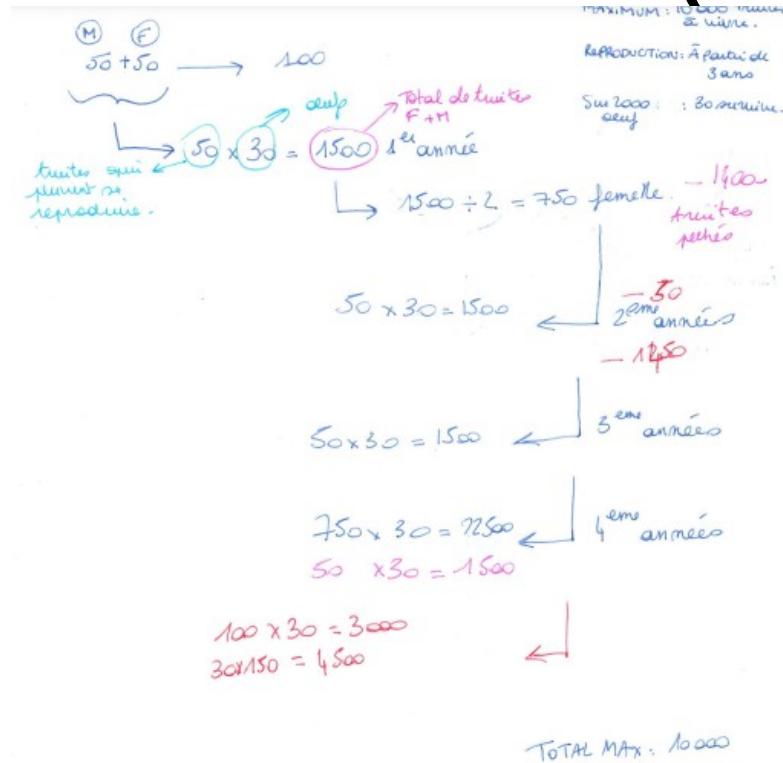 M F
50 + 50 → 100
MAXIMUM : 10 000 truites
à vivre.
REPRODUCTION : À partir de
3 ans
Sur 2000 : : 30 survive.
oeuf
oeufs
Total de truites
F + M
50 x 30 = 1500 1er année
truites qui
peuvent se
reproduire.
1500 ÷ 2 = 750 femelle.
- 1400
truites
pechés
50 x 30 = 1500
- 50
2eme années
50 x 30 = 1500
3eme années
750 x 30 = 22500
4eme années
50 x 30 = 1500
100 x 30 = 3000
30x150 = 4500
TOTAL MAX : 10000